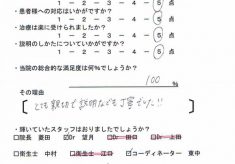 1 - 2 - 3 - 4 - 5 点
・患者様への対応はいかがですか？
1 - 2 - 3 - 4 - 5 点
・治療は楽に受けられましたか？
1 - 2 - 3 - 4 - 5 点
・説明のしかたについていかがですか？
1 - 2 - 3 - 4 - 5 点
・当院の総合的な満足度は何％でしょうか？
100 %
その理由
とても親切で説明などもて丁寧でした!!
・輝いていたスタッフはおりましたでしょうか？
□院長 夏田 ☑Dr 望月 □Dr 田口 □Dr 上田
□衛生士 中村 □衛生士 江口 ☑コーディネーター 東中